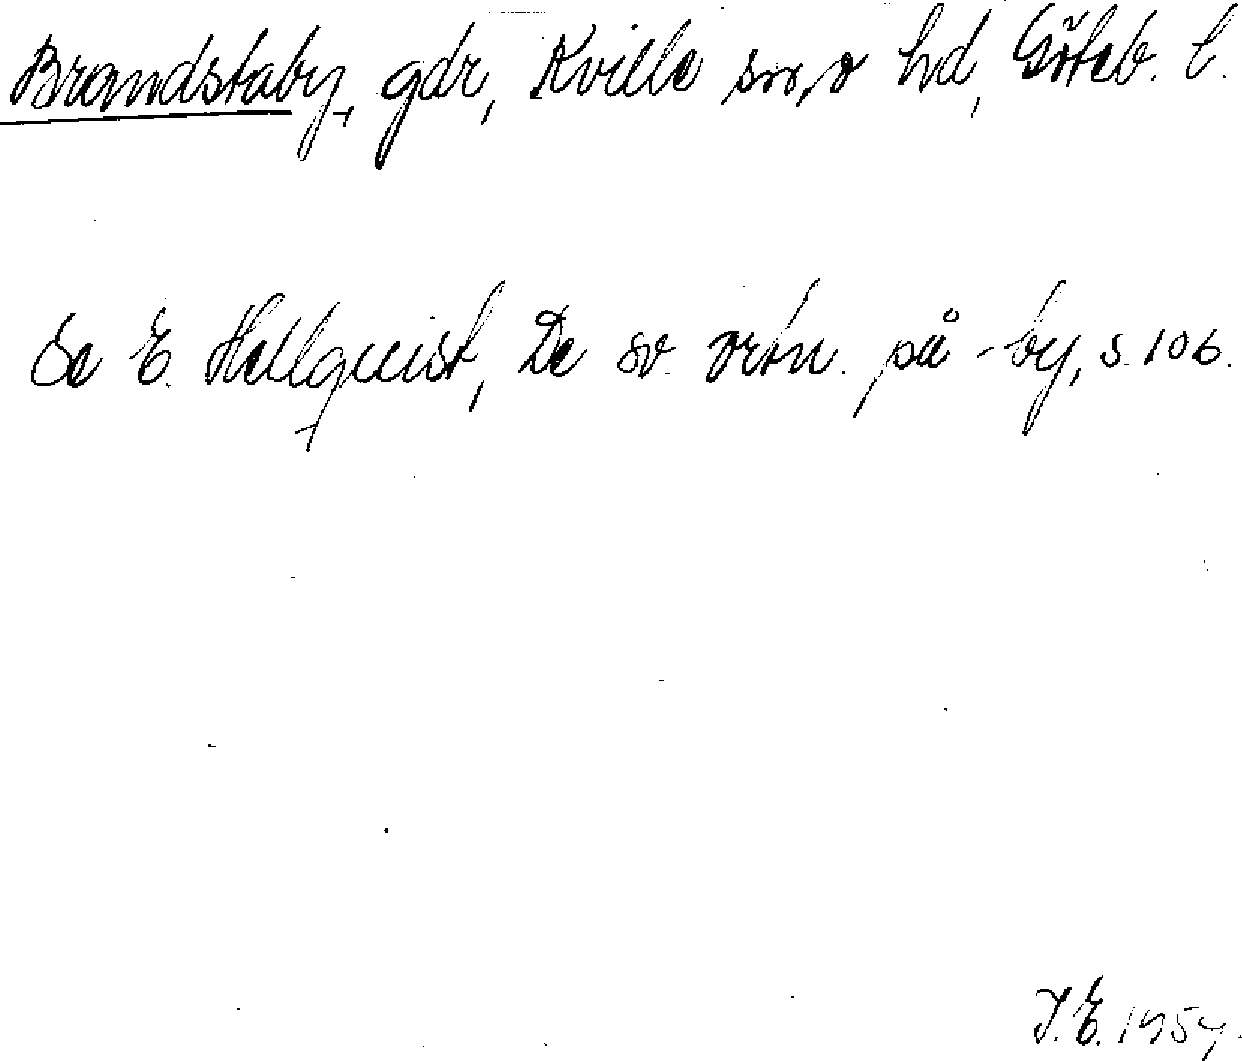 Brandstaby, gdr, Kville sn o hd, Göteb. l.
Se E. Hellquist, De sv. ortn. på -by, s. 106.
J. E. 1954.